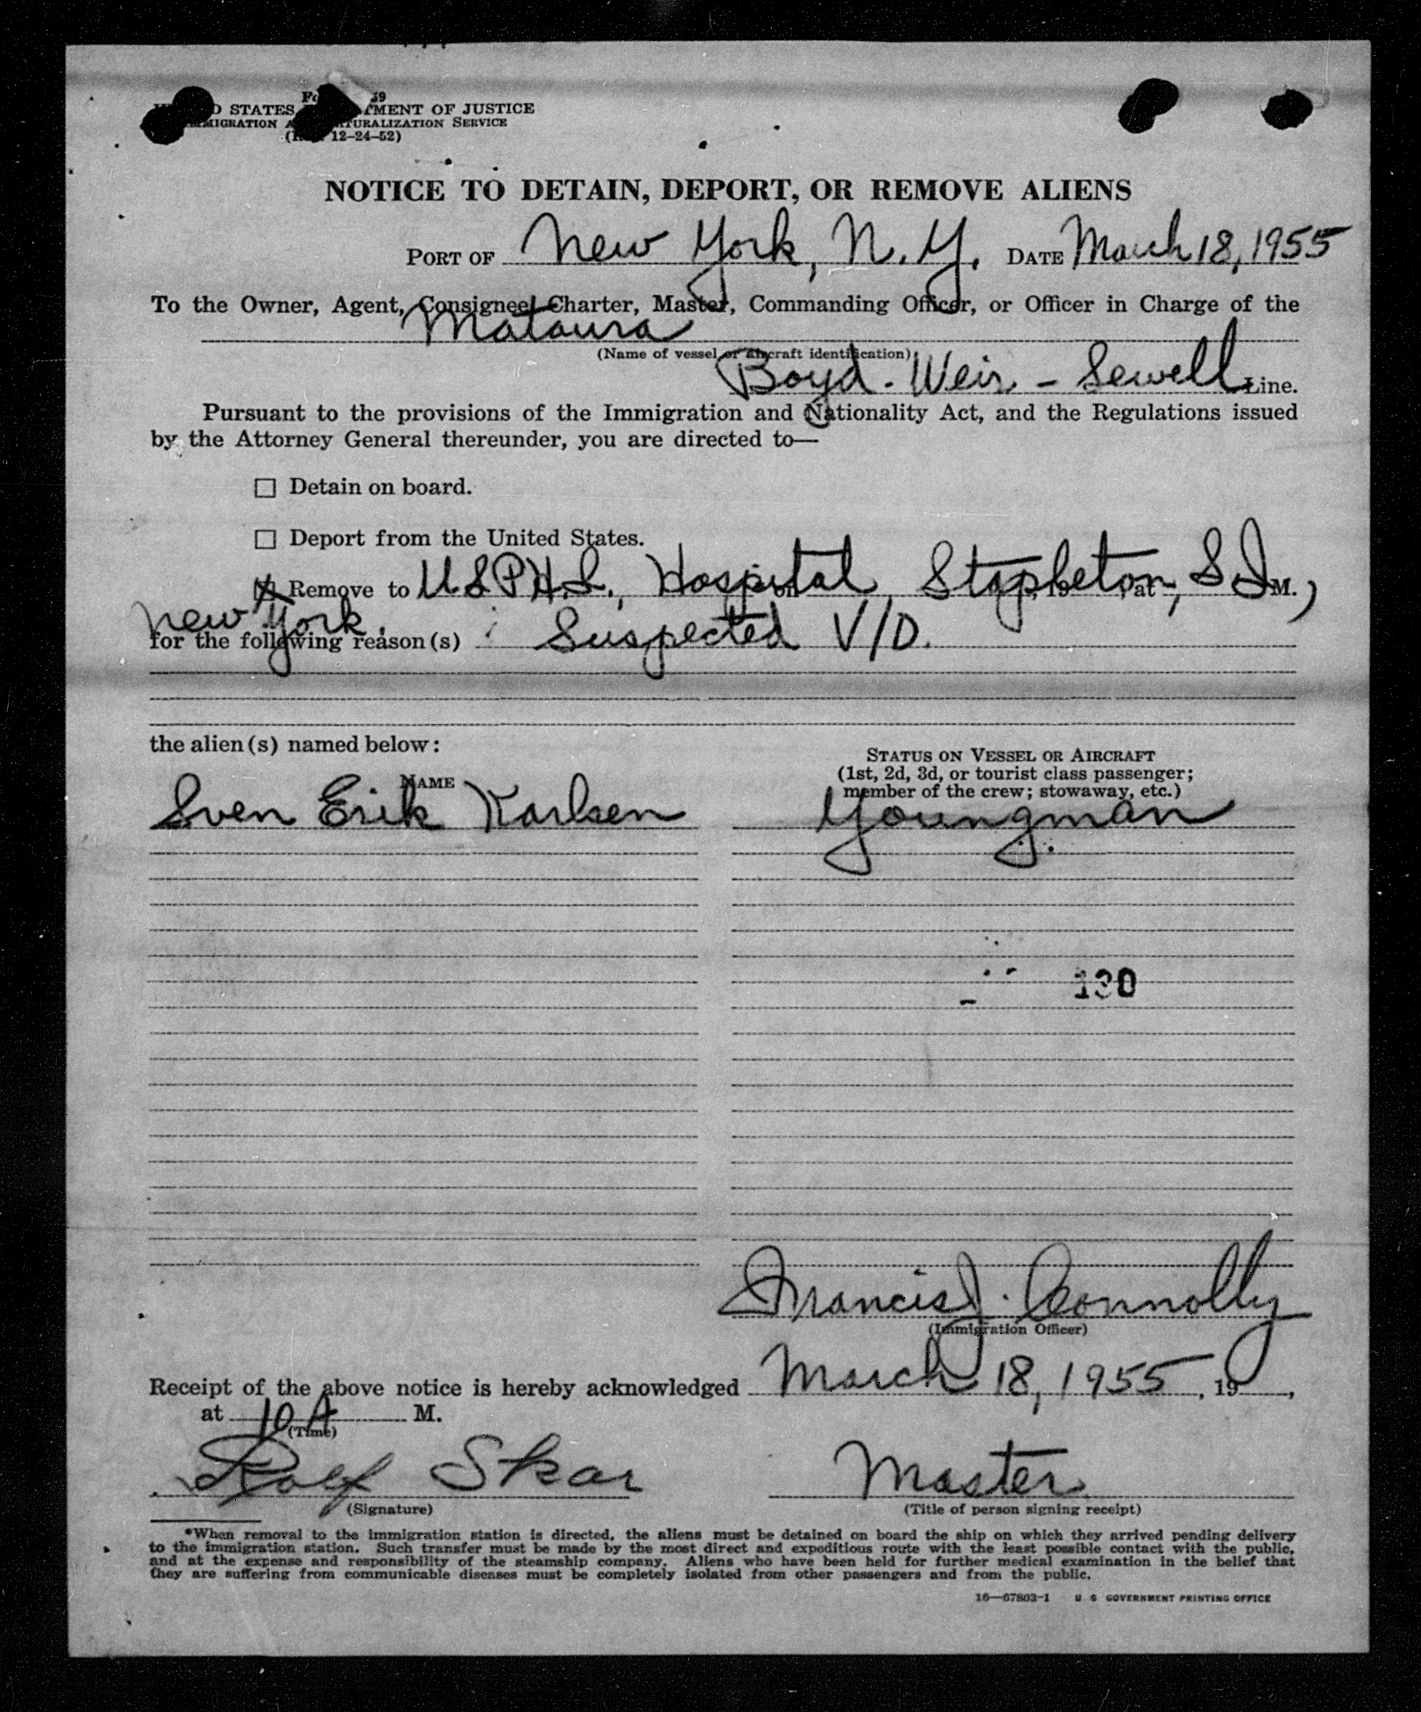 STATES MENT OF JUSTICE
MIGRATION TURALIZATION SERVICE
12–24–52)
NOTICE TO DETAIN, DEPORT, OR REMOVE ALIENS
PORT OF New York, N.Y. DATE March 18, 1955
To the Owner, Agent, Consignee, Charter, Master, Commanding Officer, or Officer in Charge of the
Mataura
(Name of vessel or aircraft identification)
Boyd - Weir - Sewell Line.
Pursuant to the provisions of the Immigration and Nationality Act, and the Regulations issued
by the Attorney General thereunder, you are directed to—
☐ Detain on board.
☐ Deport from the United States.
☒ Remove to U.S.P.H.S., Hospital, Stapleton, S.I., M.
New York.
for the following reason(s) : Suspected V/D.
the alien(s) named below:
NAME
STATUS ON VESSEL OR AIRCRAFT
(1st, 2d, 3d, or tourist class passenger;
member of the crew; stowaway, etc.)
Sven Erik Karlsen Youngman
130
Francis J. Connolly
(Immigration Officer)
Receipt of the above notice is hereby acknowledged March 18, 1955, 19 ,
at 10 A M.
(Time)
Rolf Skar Master
(Signature) (Title of person signing receipt)
*When removal to the immigration station is directed, the aliens must be detained on board the ship on which they arrived pending delivery
to the immigration station. Such transfer must be made by the most direct and expeditious route with the least possible contact with the public,
and at the expense and responsibility of the steamship company. Aliens who have been held for further medical examination in the belief that
they are suffering from communicable diseases must be completely isolated from other passengers and from the public.
16—67803-1 U S GOVERNMENT PRINTING OFFICE